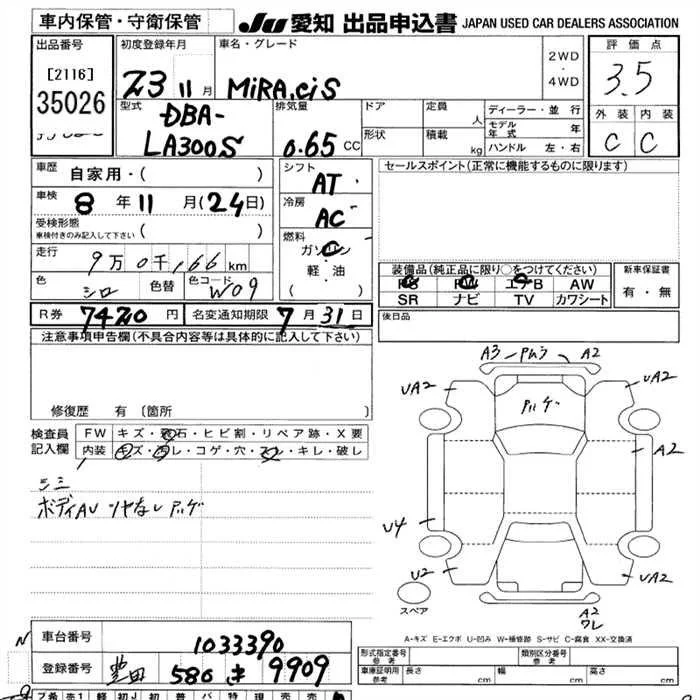 車内保管・守衛保管
JU 愛知 出品申込書 JAPAN USED CAR DEALERS ASSOCIATION
出品番号
[2116]
35026
初度登録年月
23 11月
車名・グレード
MiRA.eiS
2WD
・
4WD
評価点
3.5
外装 内装
C C
型式
DBA-
LA300S
排気量
0.65 CC
ドア
定員
人
形状
積載
kg
ディーラー・並行
モデル年式 年
ハンドル 左・右
車歴
自家用・( )
車検 8年 11月(24日)
受検形態
車検付きのみ記入して下さい ( )
走行
9万0千,166km
色
シロ
色替
色コード
W09
シフト
AT
冷房
AC
燃料
ガソリン
軽・油
( )
セールスポイント(正常に機能するものに限ります)
装備品(純正品に限り○をつけてください)
PS PW エアB AW
SR ナビ TV カワシート
新車保証書
有・無
R券 7420円
名変通知期限 7月31日
後日品
注意事項申告欄(不具合内容等は具体的に記入して下さい)
修復歴 有 [箇所 ]
検査員
記入欄
FW キズ・飛石・ヒビ割・リペア跡・X要
内装 キズ・汚レ・コゲ・穴・スレ・キレ・破レ
シミ
ボディAU ツヤなし ハゲ
A3 A2
UA2 UA2
ハゲ
A2
U4
U2 UA2
スペア
A2
ワレ
A-キズ E-エクボ U-凹み W-補修跡 S-サビ C-腐食 XX-交換済
車台番号 1033390
登録番号 豊田 580 き 9909
型式指定番号
参考
類別区分番号
参考
車庫証明用
参考
長さ cm 幅 cm 高さ cm